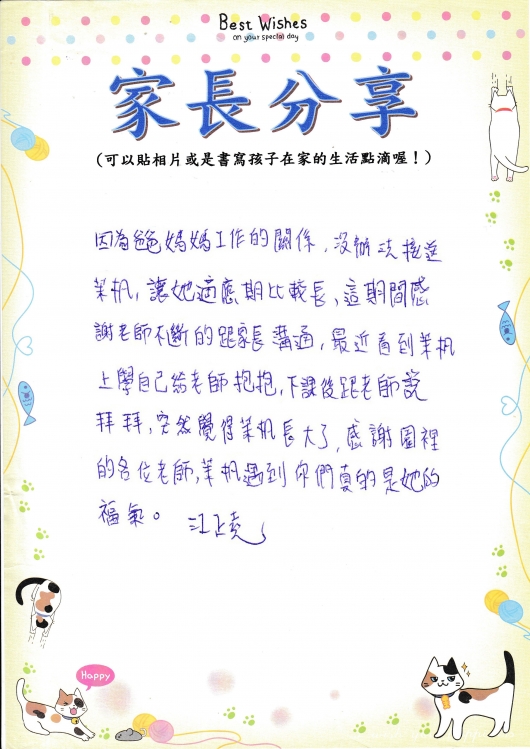 Best Wishes
on your special day
家長分享
(可以貼相片或是書寫孩子在家的生活點滴喔！)
因為爸媽媽工作的關係，沒辦法接送
茉帆，讓她適應期比較長，這期間感
謝老師不斷的跟家長溝通，最近看到茉帆
上學自己給老師抱抱，下課後跟老師說
拜拜，突然覺得茉帆長大了，感謝園裡
的各位老師，茉帆遇到你們真的是她的
福氣。
Happy